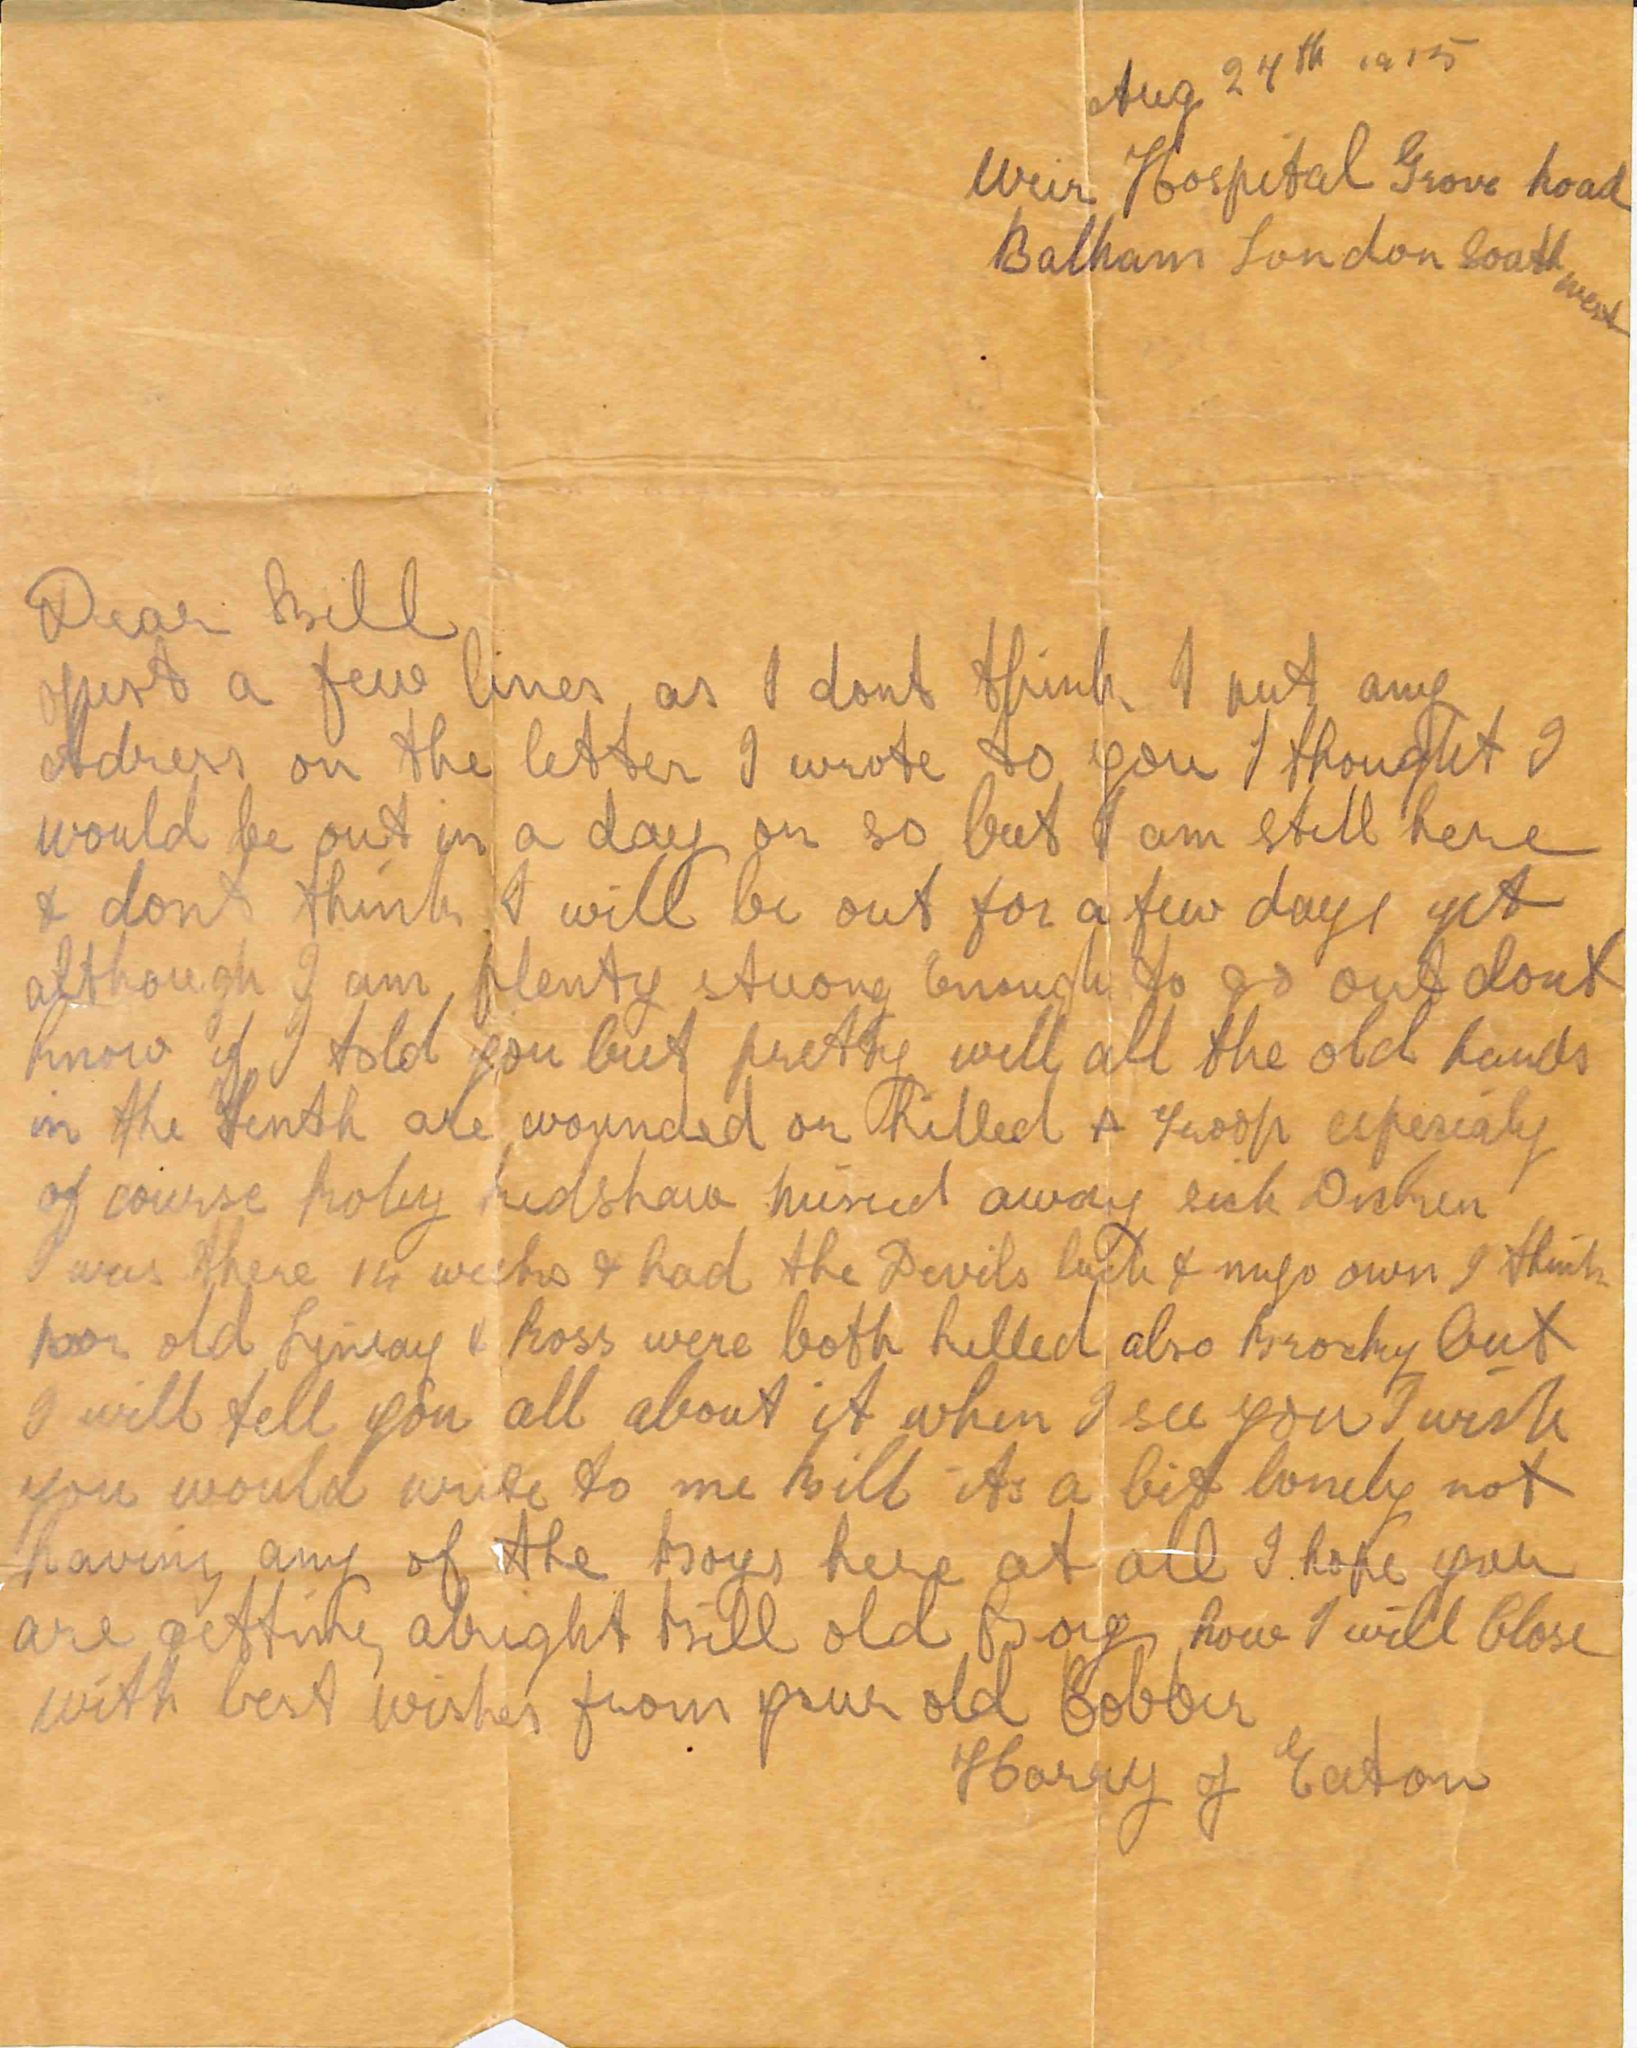 Aug 24th 1915
Weir Hospital Grove Road
Balham London South
west
Dear Bill
Just a few lines as I dont think I put any
Adress on the letter I wrote to you I thought I
would be out in a day or so but I am still here
& dont think I will be out for a few days yet
although I am plenty strong Enough to go out dont
know if I told you but pretty well all the old hands
in the Tenth are wounded or Killed A Troop especialy
of course Roby Redshaw missed away sick
I was there 14 weeks & had the Devils luck & my own I think
poor old Linsay & Ross were both killed also but
I will tell you all about it when I see you I wish
you would write to me Bill its a bit lonely not
having any of the Boys here at all I hope you
are getting alright Bill old Boy now I will Close
with best wishes from your old Cobber
Harry J Eaton